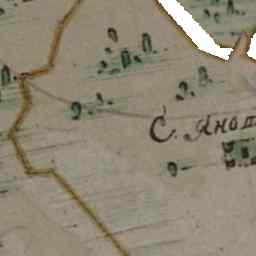 С. Яноп